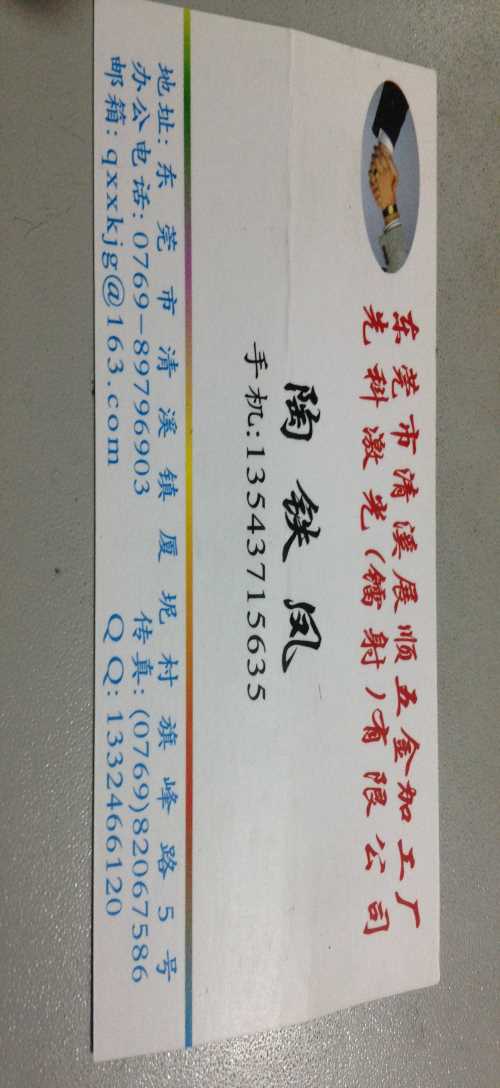 东莞市清溪展顺五金加工厂
光科激光(镭射)有限公司
陶铁凤
手机:13543715635
地址:东莞市清溪镇厦坭村旗峰路5号
办公电话:0769-89796903 传真:(0769)82067586
邮箱:qxxkjg@163.com QQ:1332466120